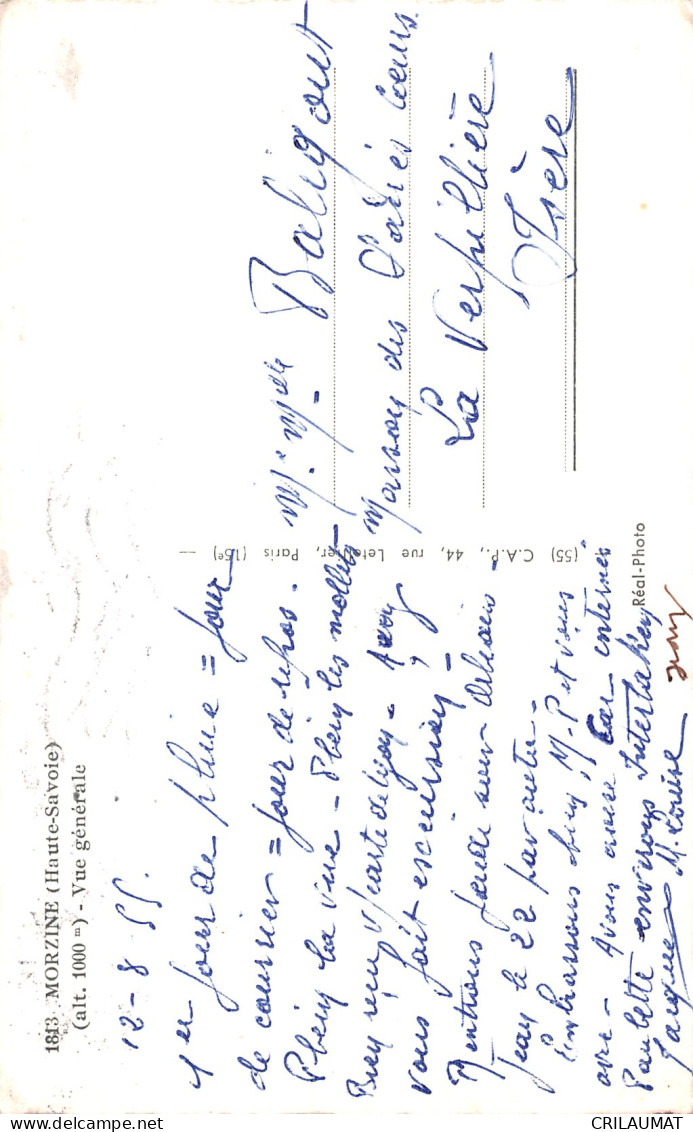 1813 MORZINE (Haute-Savoie)
(alt. 1000 m) - Vue générale
12-8-55.
1er jour de pluie = jour
de courrier = jour de repos.
Plein la vue - Plein les mollets
Bien reçu v/carte de Lyon - Avez
vous fait excursion ?
Rentrons jeudi soir
Jean le 22 par auto -
Embrassons bien M-P et vous
avec - Avons croisé car
Paulette environs Interlaken
Jacques M. Louise Jean
(55) C.A.P., 44, rue Letellier, Paris (15e) —
Réal-Photo
Mr. Mme Baligout
Maison des Sacrés Coeurs
La Verpillière
Isère
CRILAUMAT